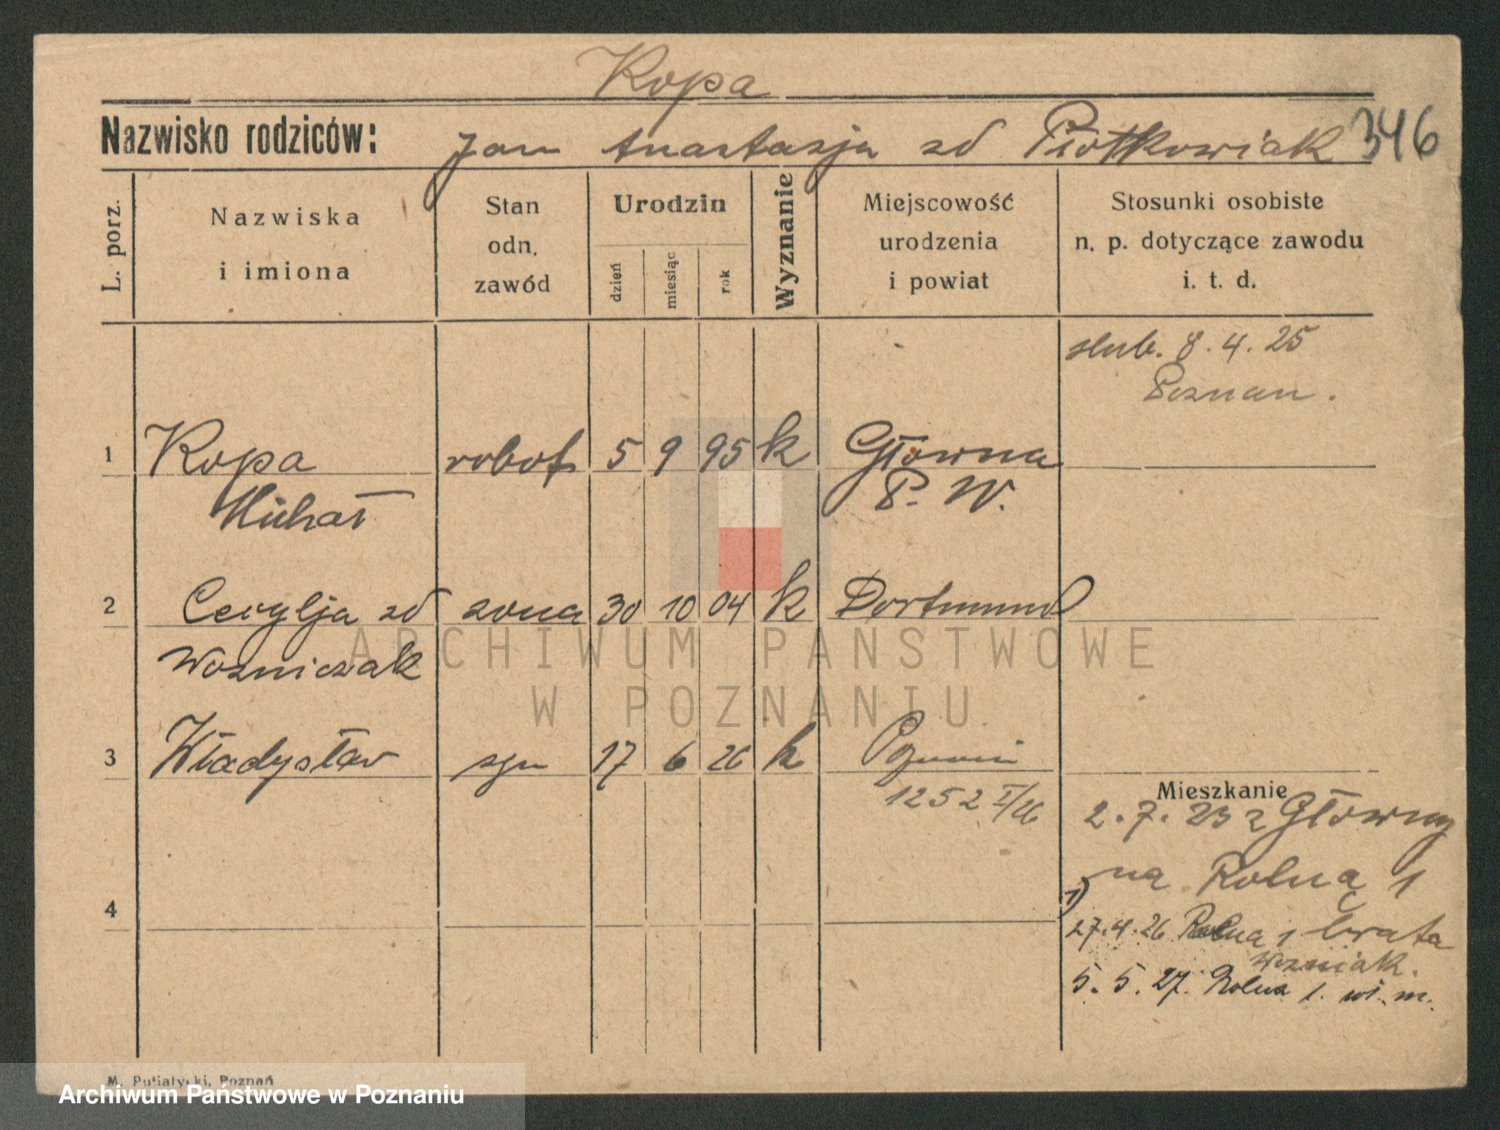 Kopa
Nazwisko rodziców: Jan Anastazja zd Piotrkowiak 346
L. porz.
Nazwiska i imiona
Stan odn. zawód
Urodzin
dzień miesiąc rok
Wyznanie
Miejscowość urodzenia i powiat
Stosunki osobiste n. p. dotyczące zawodu i. t. d.
slub. 8. 4. 25
Poznan.
1 Kopa robot 5 9 95 k Główna
Michał P. W.
2 Cecylja zd zona 30 10 04 k Dortmund
Wozniczak
3 Władysław syn 17 6 26 k Poznań
1252 I/26
Mieszkanie
2. 7. 23 z Główny
na Rolną 1
1)
27. 4. 26 Rolna 1 brata
Wozniak.
4
5. 5. 27. Rolna 1. wł. m.
M. Putiatycki, Poznań
ARCHIWUM PAŃSTWOWE
W POZNANIU
Archiwum Państwowe w Poznaniu